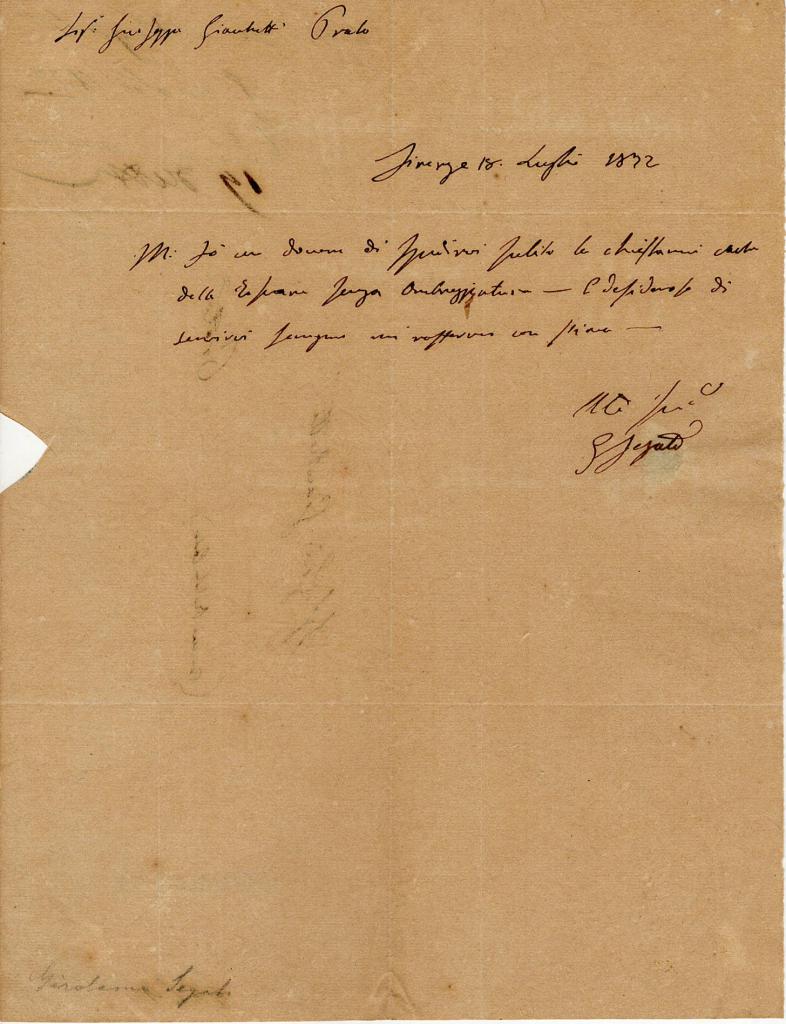 Sigr Giuseppe Gianchetti Prato
Firenze 18. Luglio 1832
Mi fò un dovere di spedirvi subito la chiestami carta
della Toscana senza Ombreggiatura — E desideroso di
servirvi sempre mi raffermo con stima —
G Segato
Girolamo Segato